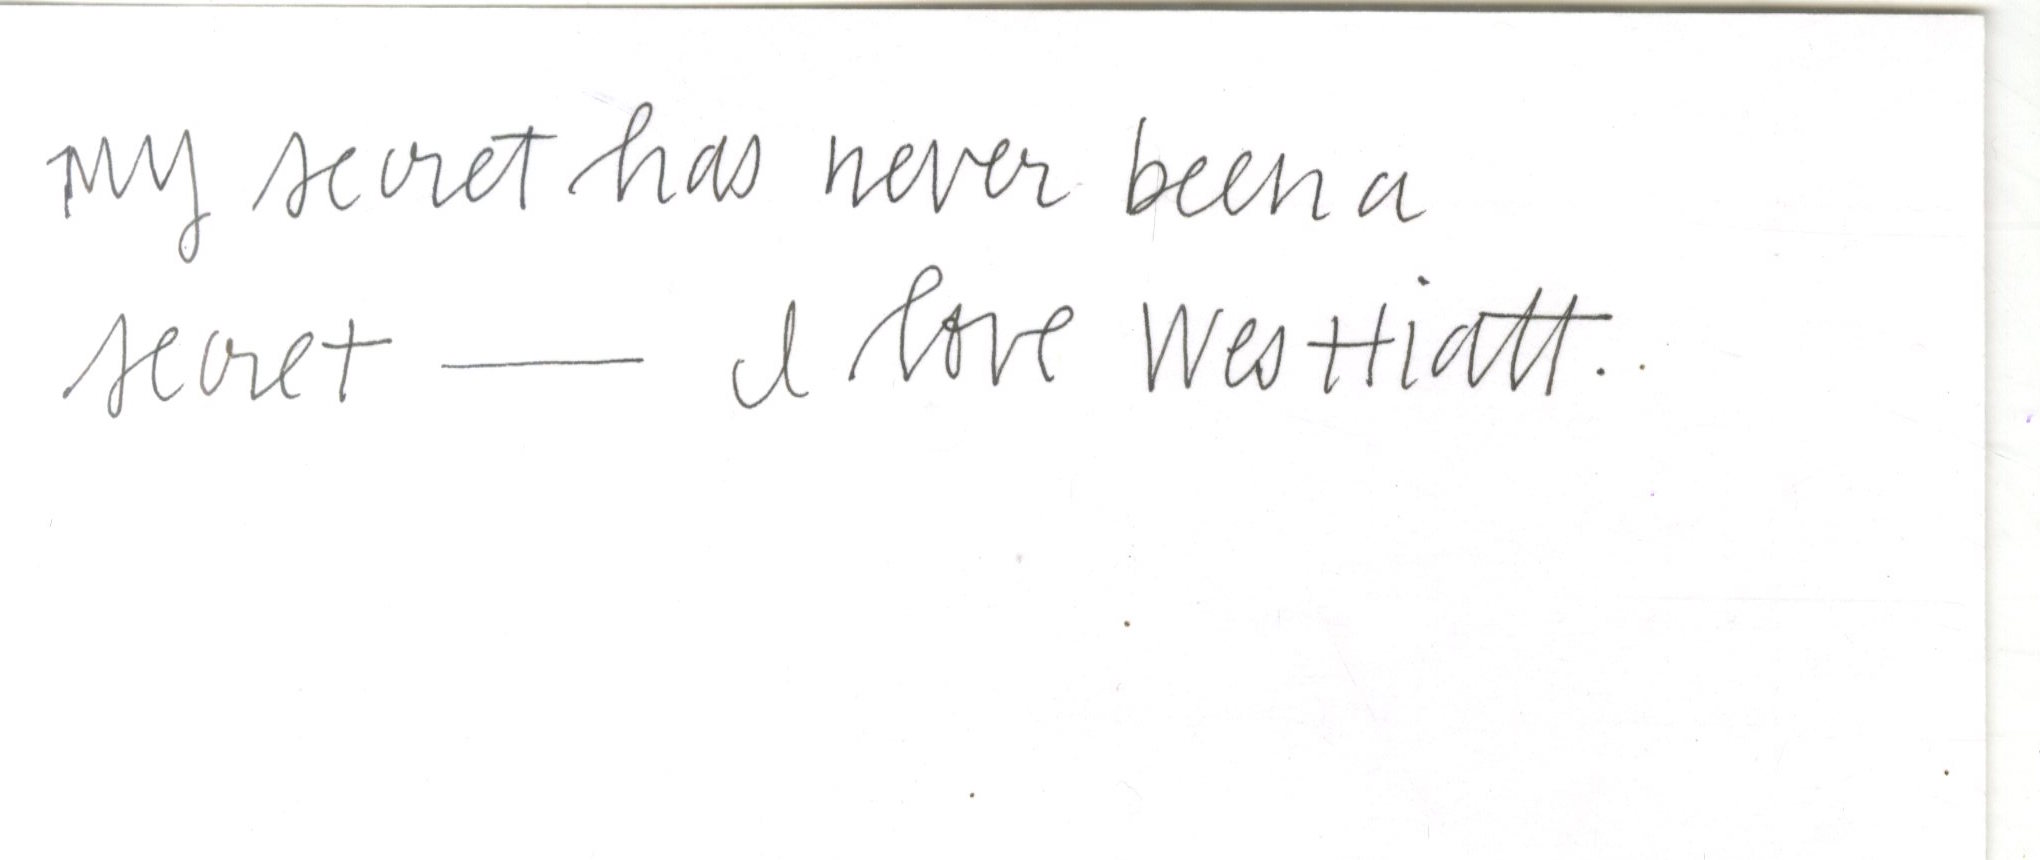 My secret has never been a
secret — I love Wes Hiatt.